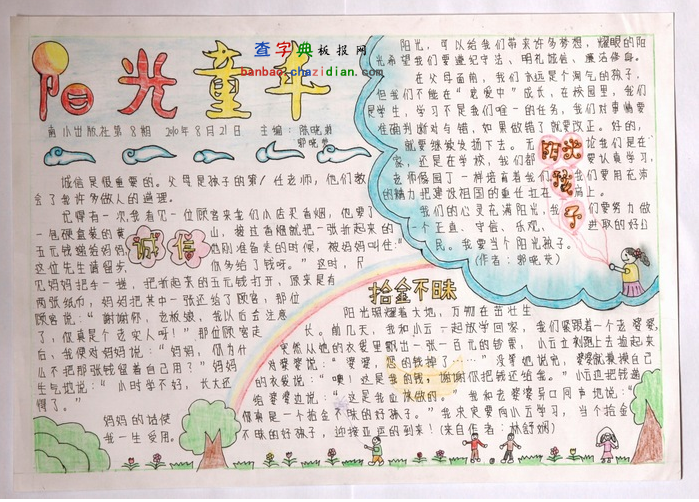 查字典板报网
banbao.chazidian.com
阳光童年
南小出版社第8期 2010年8月21日 主编:陈晓
诚信是很重要的。父母是孩子的第1任老师,他们教
会了我许多做人的道理。
记得有一次,我看见一位顾客来我们小店买香烟,他要了
一包硬盒装的黄山,接过香烟就把一张折起来的
五元钱递给妈妈,
准备走的时候,被妈妈叫住:“
这位先生请留步,你多给了钱呀。”这时,只
见妈妈把手一搓,把折起来的五元钱打开,原来是有
两张纸币,妈妈把其中一张还给了顾客,那位
顾客说:“谢谢你,老板娘,我以后会注意
了,你真是个老实人呀!”那位顾客走
后,我便对妈妈说:“妈妈,你为什
么不把那张钱留着自己用?”妈妈
生气地说:“小时学不好,长大还
得了。”
妈妈的话使
我一生受用。
诚信
阳光,可以给我们带来许多梦想,耀眼的阳
光希望我们要遵纪守法、明礼诚信、廉洁修身。
在父母面前,我们永远是个淘气的孩子,
但我们不能在“宠爱中”成长,在校园里,我们
是学生,学习不是我们唯一的任务,我们对事情要
准确判断对与错,如果做错了就要改正。好的,
就要继续发扬下去。无论我们是在
家,还是在学校,我们都要认真学习,
老师像园丁一样培育着我们,我们要用花季
的精力把建设祖国的重任扛在肩上。
我们的心灵花满阳光,我们要努力做
一个正直、守信、乐观、进取的好公
民。我要当个阳光孩子。
(作者:郭晓荧)
阳光孩子
拾金不昧
阳光照耀着大地,万物在茁壮生
长。前几天,我和小云一起放学回家,我们紧跟着一个老婆婆,
突然从她的衣袋里飘出一张一百元的钞票,小云立刻跑上去捡起来
对婆婆说:“婆婆,您的钱掉了……”没等他说完,婆婆就摸摸自己
的衣袋说:“噢!这是我的钱,谢谢你把钱还给我。”小云边把钱递
给婆婆边说:“这是我应该做的。”我和老婆婆异口同声地说:“
你真是一个拾金不昧的好孩子。”我决定要向小云学习,当个拾金
不昧的好孩子,迎接亚运的到来!(来自作者:林舒娴)